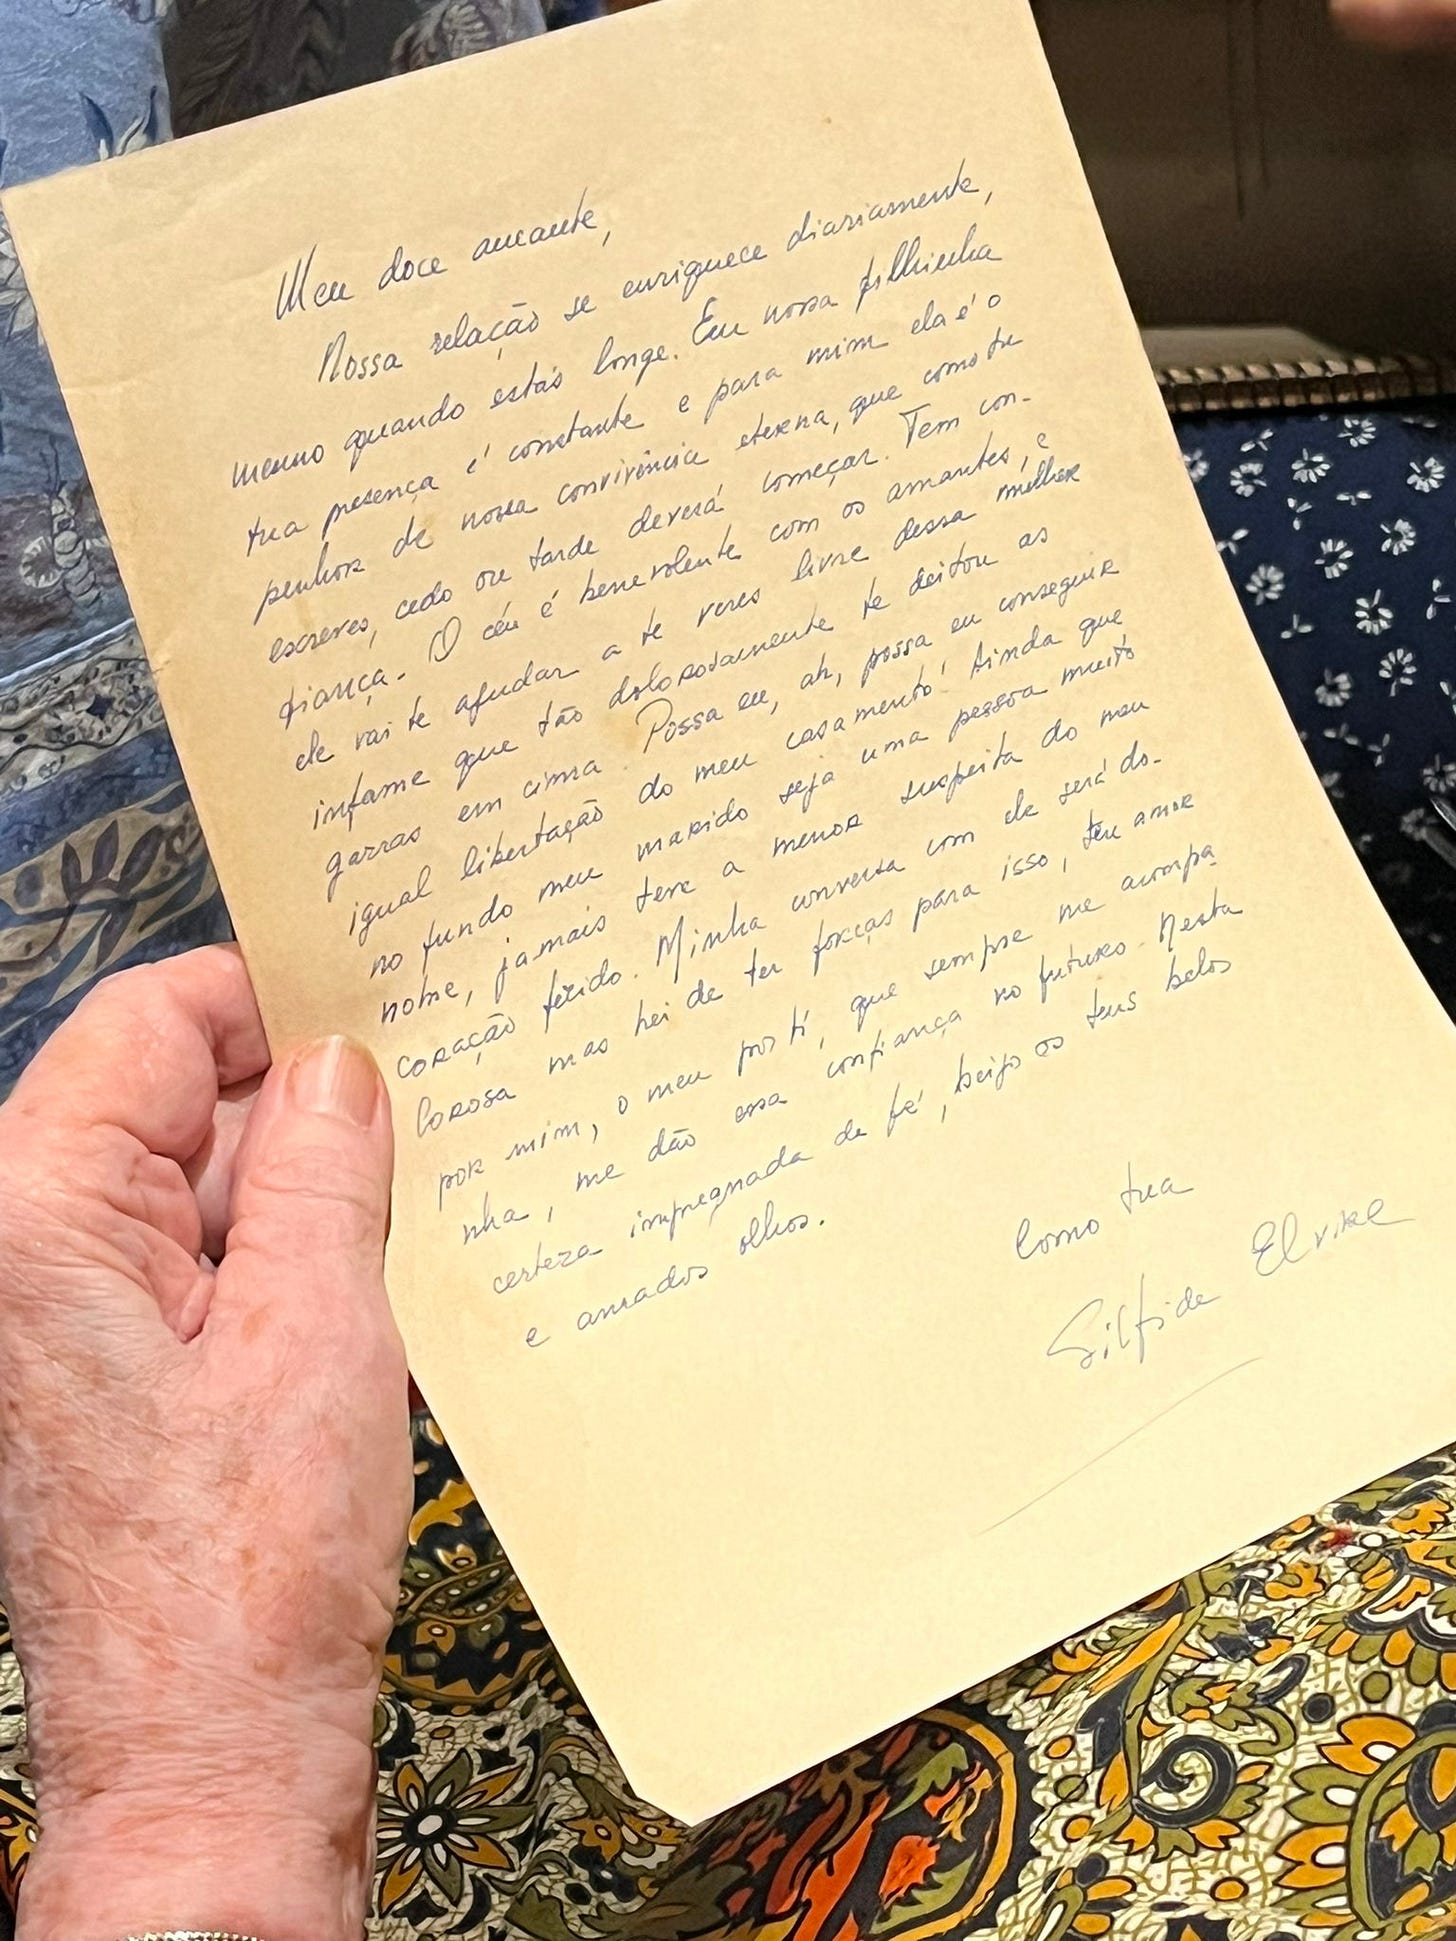 Meu doce amante,
Nossa relação se enriquece diariamente,
mesmo quando estás longe. Em nossa filhinha
tua presença é constante e para mim ela é o
penhor de nossa convivência eterna, que como tu
escreves, cedo ou tarde deverá começar. Tem con-
fiança. O céu é benevolente com os amantes, e
ele vai te ajudar a te veres livre dessa mulher
infame que tão dolorosamente te deitou as
garras em cima. Possa eu, ah, possa eu conseguir
igual libertação do meu casamento! Ainda que
no fundo meu marido seja uma pessoa muito
nobre, jamais teve a menor suspeita do meu
coração ferido. Minha conversa com ele será do-
lorosa mas hei de ter forças para isso, teu amor
por mim, o meu por ti, que sempre me acompa-
nha, me dão essa confiança no futuro. Nesta
certeza impregnada de fé, beijo os teus belos
e amados olhos.
Como tua
Silfide Elvire